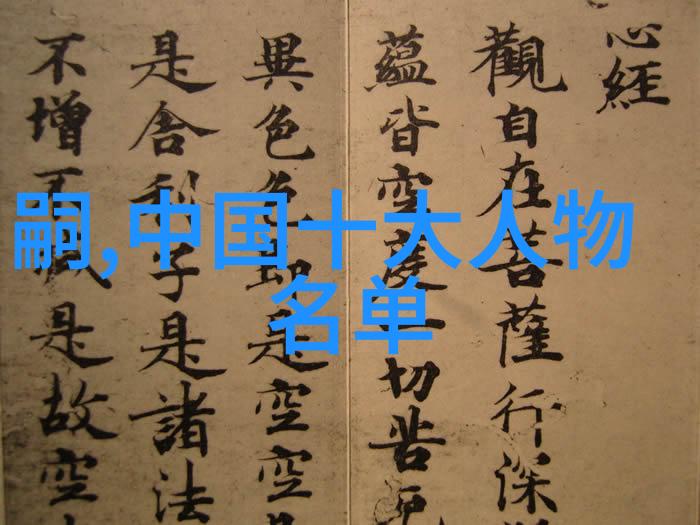 心經
觀自在菩薩行深
蘊皆空度一切苦
異色色即是空空
是舍利子是諸法
不增不減是故空
嗣,中国十大人物
名单